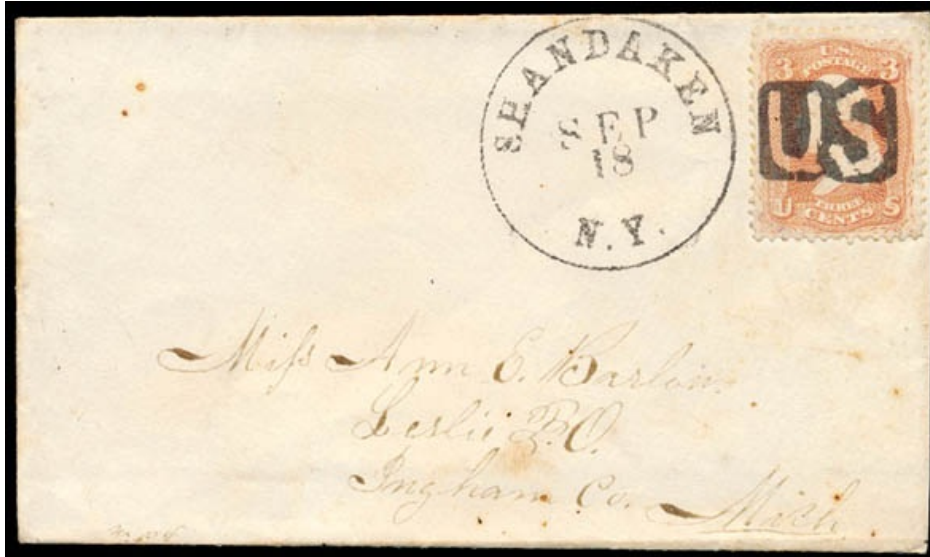 SHANDAKEN
SEP
18
N.Y.
3 U.S. 3
POSTAGE
US
U THREE S
CENTS
Miss Ann E. Barlow
Leslie P.O.
Ingham Co. Mich